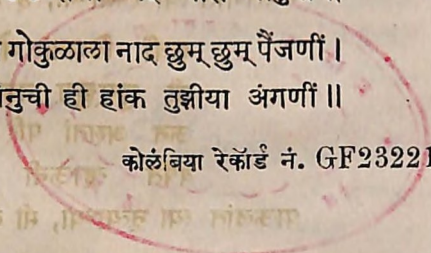 गोकुळाला नाद छुम् छुम् पैंजणीं ।
नुची ही हांक तुझीया अंगणीं ॥
कोलंबिया रेकॉर्ड नं. GF23221